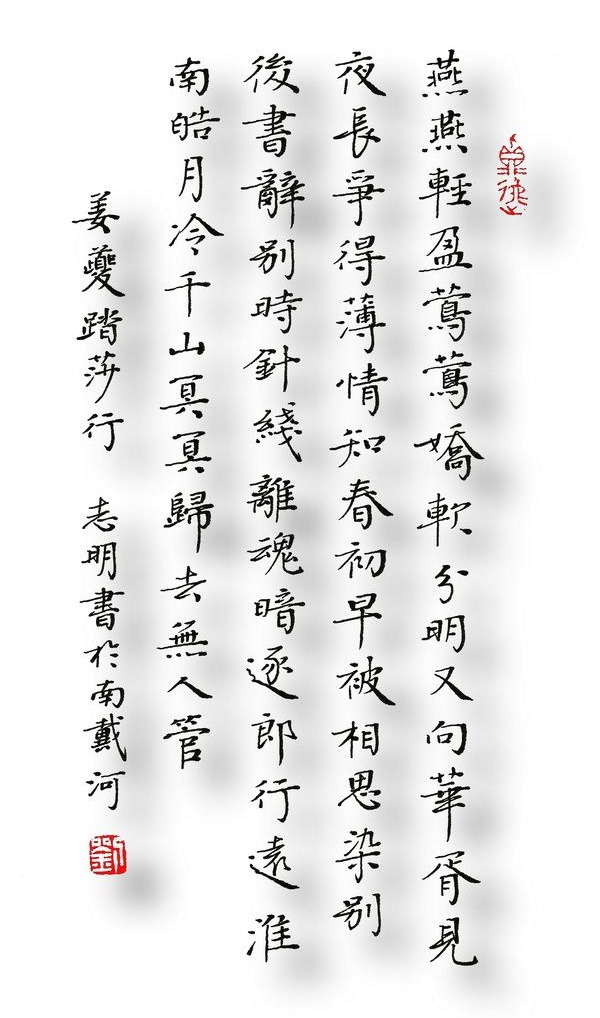 燕燕輕盈鶯鶯嬌軟分明又向華胥見
夜長爭得薄情知春初早被相思染別
後書辭別時針綫離魂暗逐郎行遠淮
南皓月冷千山冥冥歸去無人管
姜夔踏莎行 志明書於南戴河
劉